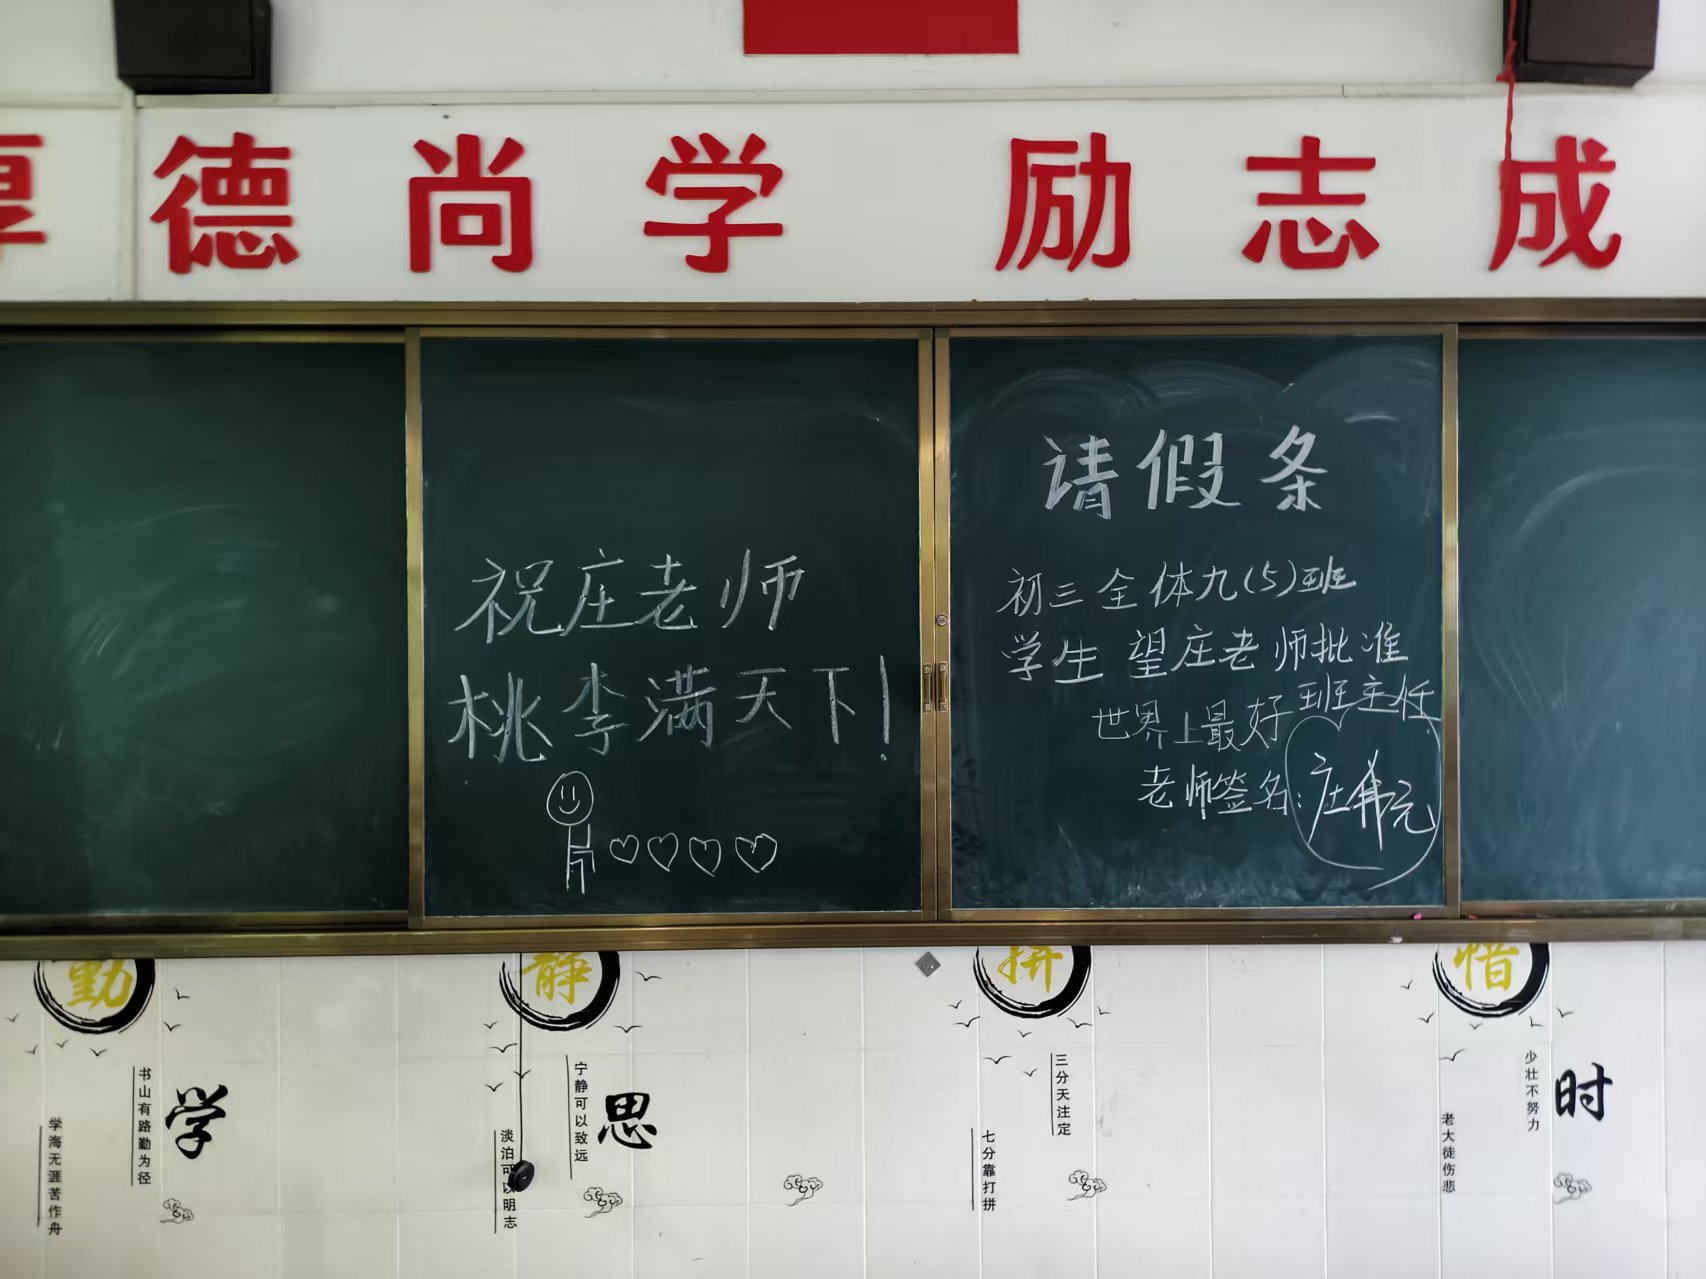 厚德尚学 励志成
祝庄老师
桃李满天下!
请假条
初三全体九(5)班
学生 望庄老师批准
世界上最好班主任
老师签名:庄
勤
学
书山有路勤为径
学海无涯苦作舟
静
思
宁静可以致远
淡泊可以明志
拼
三分天注定
七分靠打拼
惜
时
少壮不努力
老大徒伤悲